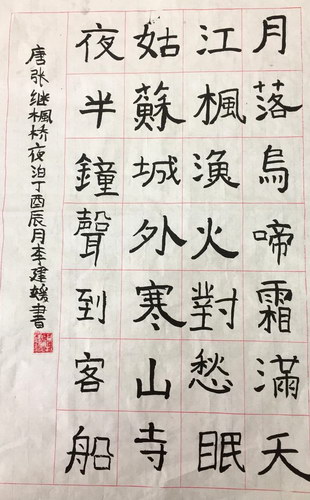 月落烏啼霜滿天
江楓漁火對愁眠
姑蘇城外寒山寺
夜半鐘聲到客船
唐张继楓桥夜泊丁酉辰月李建媛書